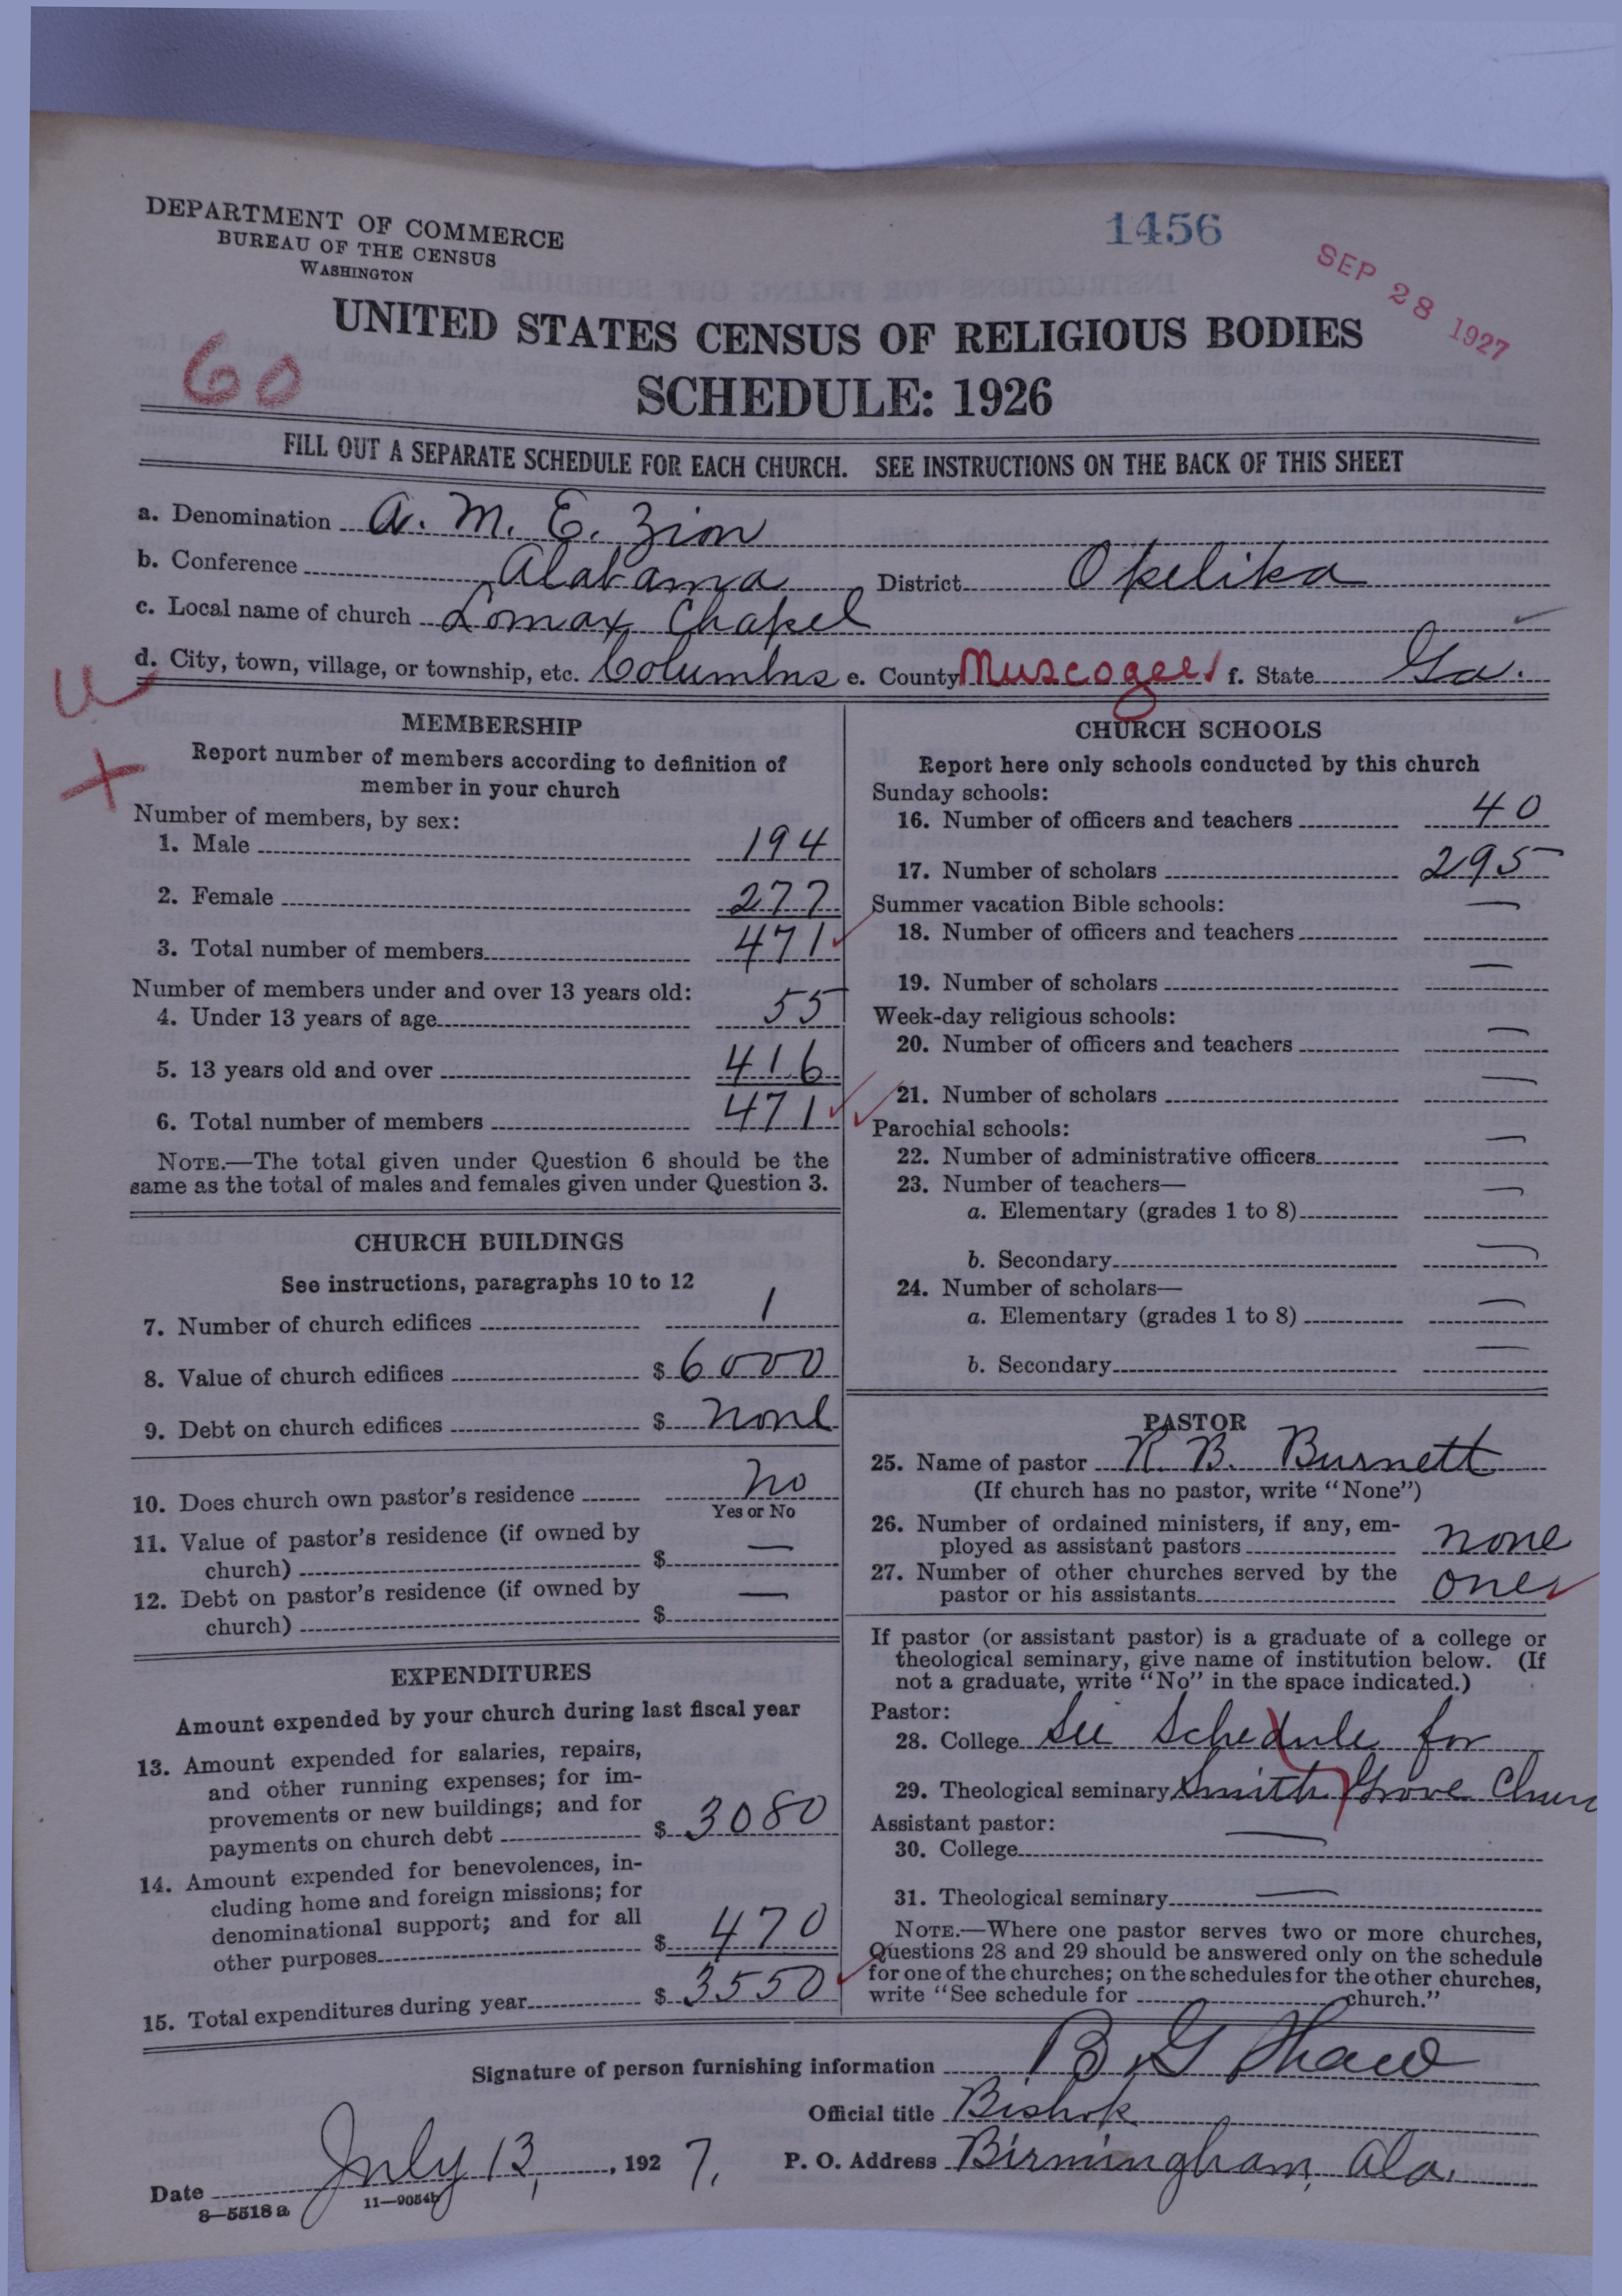 DEPARTMENT OF COMMERCE
BUREAU OF THE CENSUS
WASHINGTON
1456
SEP 28 1927
UNITED STATES CENSUS OF RELIGIOUS BODIES
60
SCHEDULE: 1926
FILL OUT A SEPARATE SCHEDULE FOR EACH CHURCH. SEE INSTRUCTIONS ON THE BACK OF THIS SHEET
a. Denomination A. M. E. Zion
b. Conference Alabama District Opelika
c. Local name of church Lomax Chapel
d. City, town, village, or township, etc. Columbus e. County Muscogee f. State Ga.
U
MEMBERSHIP
Report number of members according to definition of
member in your church
Number of members, by sex:
1. Male 194
2. Female 277
3. Total number of members 471
Number of members under and over 13 years old:
4. Under 13 years of age 55
5. 13 years old and over 416
6. Total number of members 471
NOTE.—The total given under Question 6 should be the
same as the total of males and females given under Question 3.
CHURCH BUILDINGS
See instructions, paragraphs 10 to 12
7. Number of church edifices 1
8. Value of church edifices $ 6000
9. Debt on church edifices $ none
10. Does church own pastor's residence no
Yes or No
11. Value of pastor's residence (if owned by
church) $ —
12. Debt on pastor's residence (if owned by
church) $ —
EXPENDITURES
Amount expended by your church during last fiscal year
13. Amount expended for salaries, repairs,
and other running expenses; for im-
provements or new buildings; and for
payments on church debt $ 3080
14. Amount expended for benevolences, in-
cluding home and foreign missions; for
denominational support; and for all
other purposes $ 470
15. Total expenditures during year $ 3550
CHURCH SCHOOLS
Report here only schools conducted by this church
Sunday schools:
16. Number of officers and teachers 40
17. Number of scholars 295
Summer vacation Bible schools:
18. Number of officers and teachers —
19. Number of scholars —
Week-day religious schools:
20. Number of officers and teachers —
21. Number of scholars —
Parochial schools:
22. Number of administrative officers —
23. Number of teachers—
a. Elementary (grades 1 to 8) —
b. Secondary —
24. Number of scholars—
a. Elementary (grades 1 to 8) —
b. Secondary —
PASTOR
25. Name of pastor R. B. Burnett
(If church has no pastor, write "None")
26. Number of ordained ministers, if any, em-
ployed as assistant pastors none
27. Number of other churches served by the
pastor or his assistants one
If pastor (or assistant pastor) is a graduate of a college or
theological seminary, give name of institution below. (If
not a graduate, write "No" in the space indicated.)
Pastor:
28. College See Schedule for
29. Theological seminary Smith Grove Churc
Assistant pastor:
30. College —
31. Theological seminary —
NOTE.—Where one pastor serves two or more churches,
Questions 28 and 29 should be answered only on the schedule
for one of the churches; on the schedules for the other churches,
write "See schedule for church."
Signature of person furnishing information B G Shaw
Official title Bishop
Date July 13, 1927. P. O. Address Birmingham, Ala.
8—5518 a 11—9054b